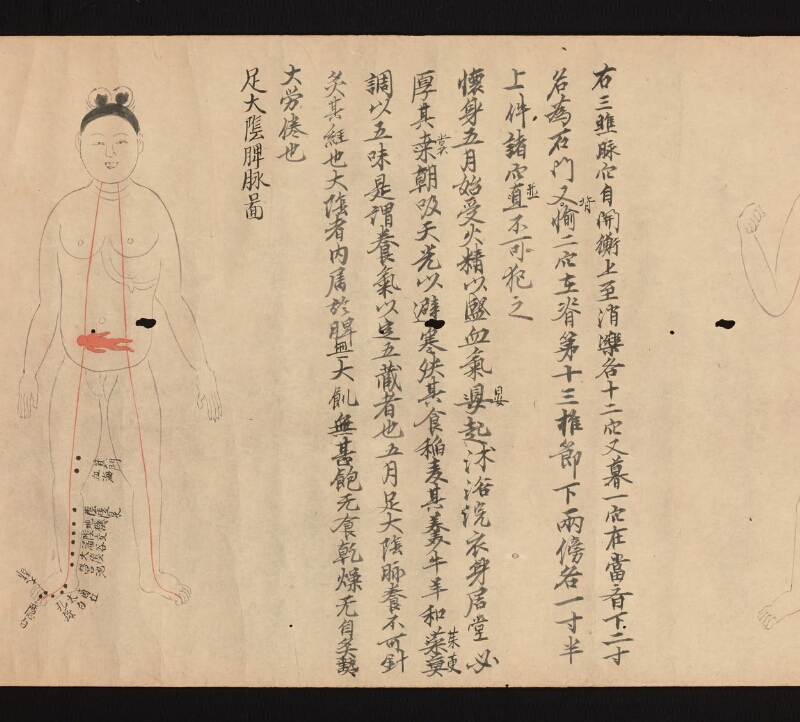 右三膲脉穴自開衝上至消濼各十二穴又募一穴在當齊下二寸
名為石門又背愉二穴在脊第十三椎節下兩傍各一寸半
上件諸穴並直不可犯之
懐身五月始受火精以盛血氣晏起沐浴浣衣身居堂必
厚其裳朝吸天光以避寒殃其食稲麦其羹牛羊和茱萸
調以五味是謂養氣以定五蔵者也五月足大陰脉養不可針
灸其経也大陰者内属於脾無大飢無甚飽无食乾燥无自炙熱
大労倦也
足大陰脾脉啚
箕門
血海